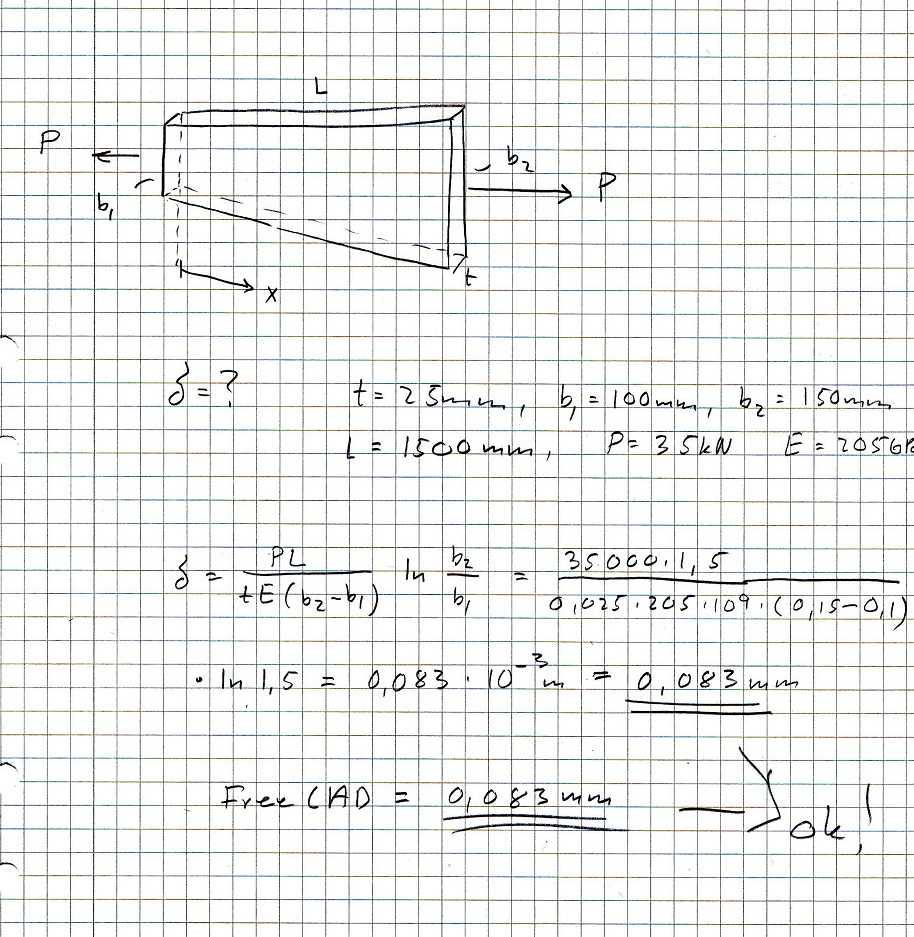 L
P
b₂
P
b₁
t
x
δ = ?
t = 25mm, b₁ = 100mm, b₂ = 150mm
L = 1500mm, P = 35kN E = 205GPa
δ = PL / tE(b₂-b₁) ln b₂/b₁ = 35000·1,5 / 0,025·205·10⁹·(0,15-0,1)
· ln 1,5 = 0,083·10⁻³m = 0,083mm
Free CAD = 0,083mm → ok!